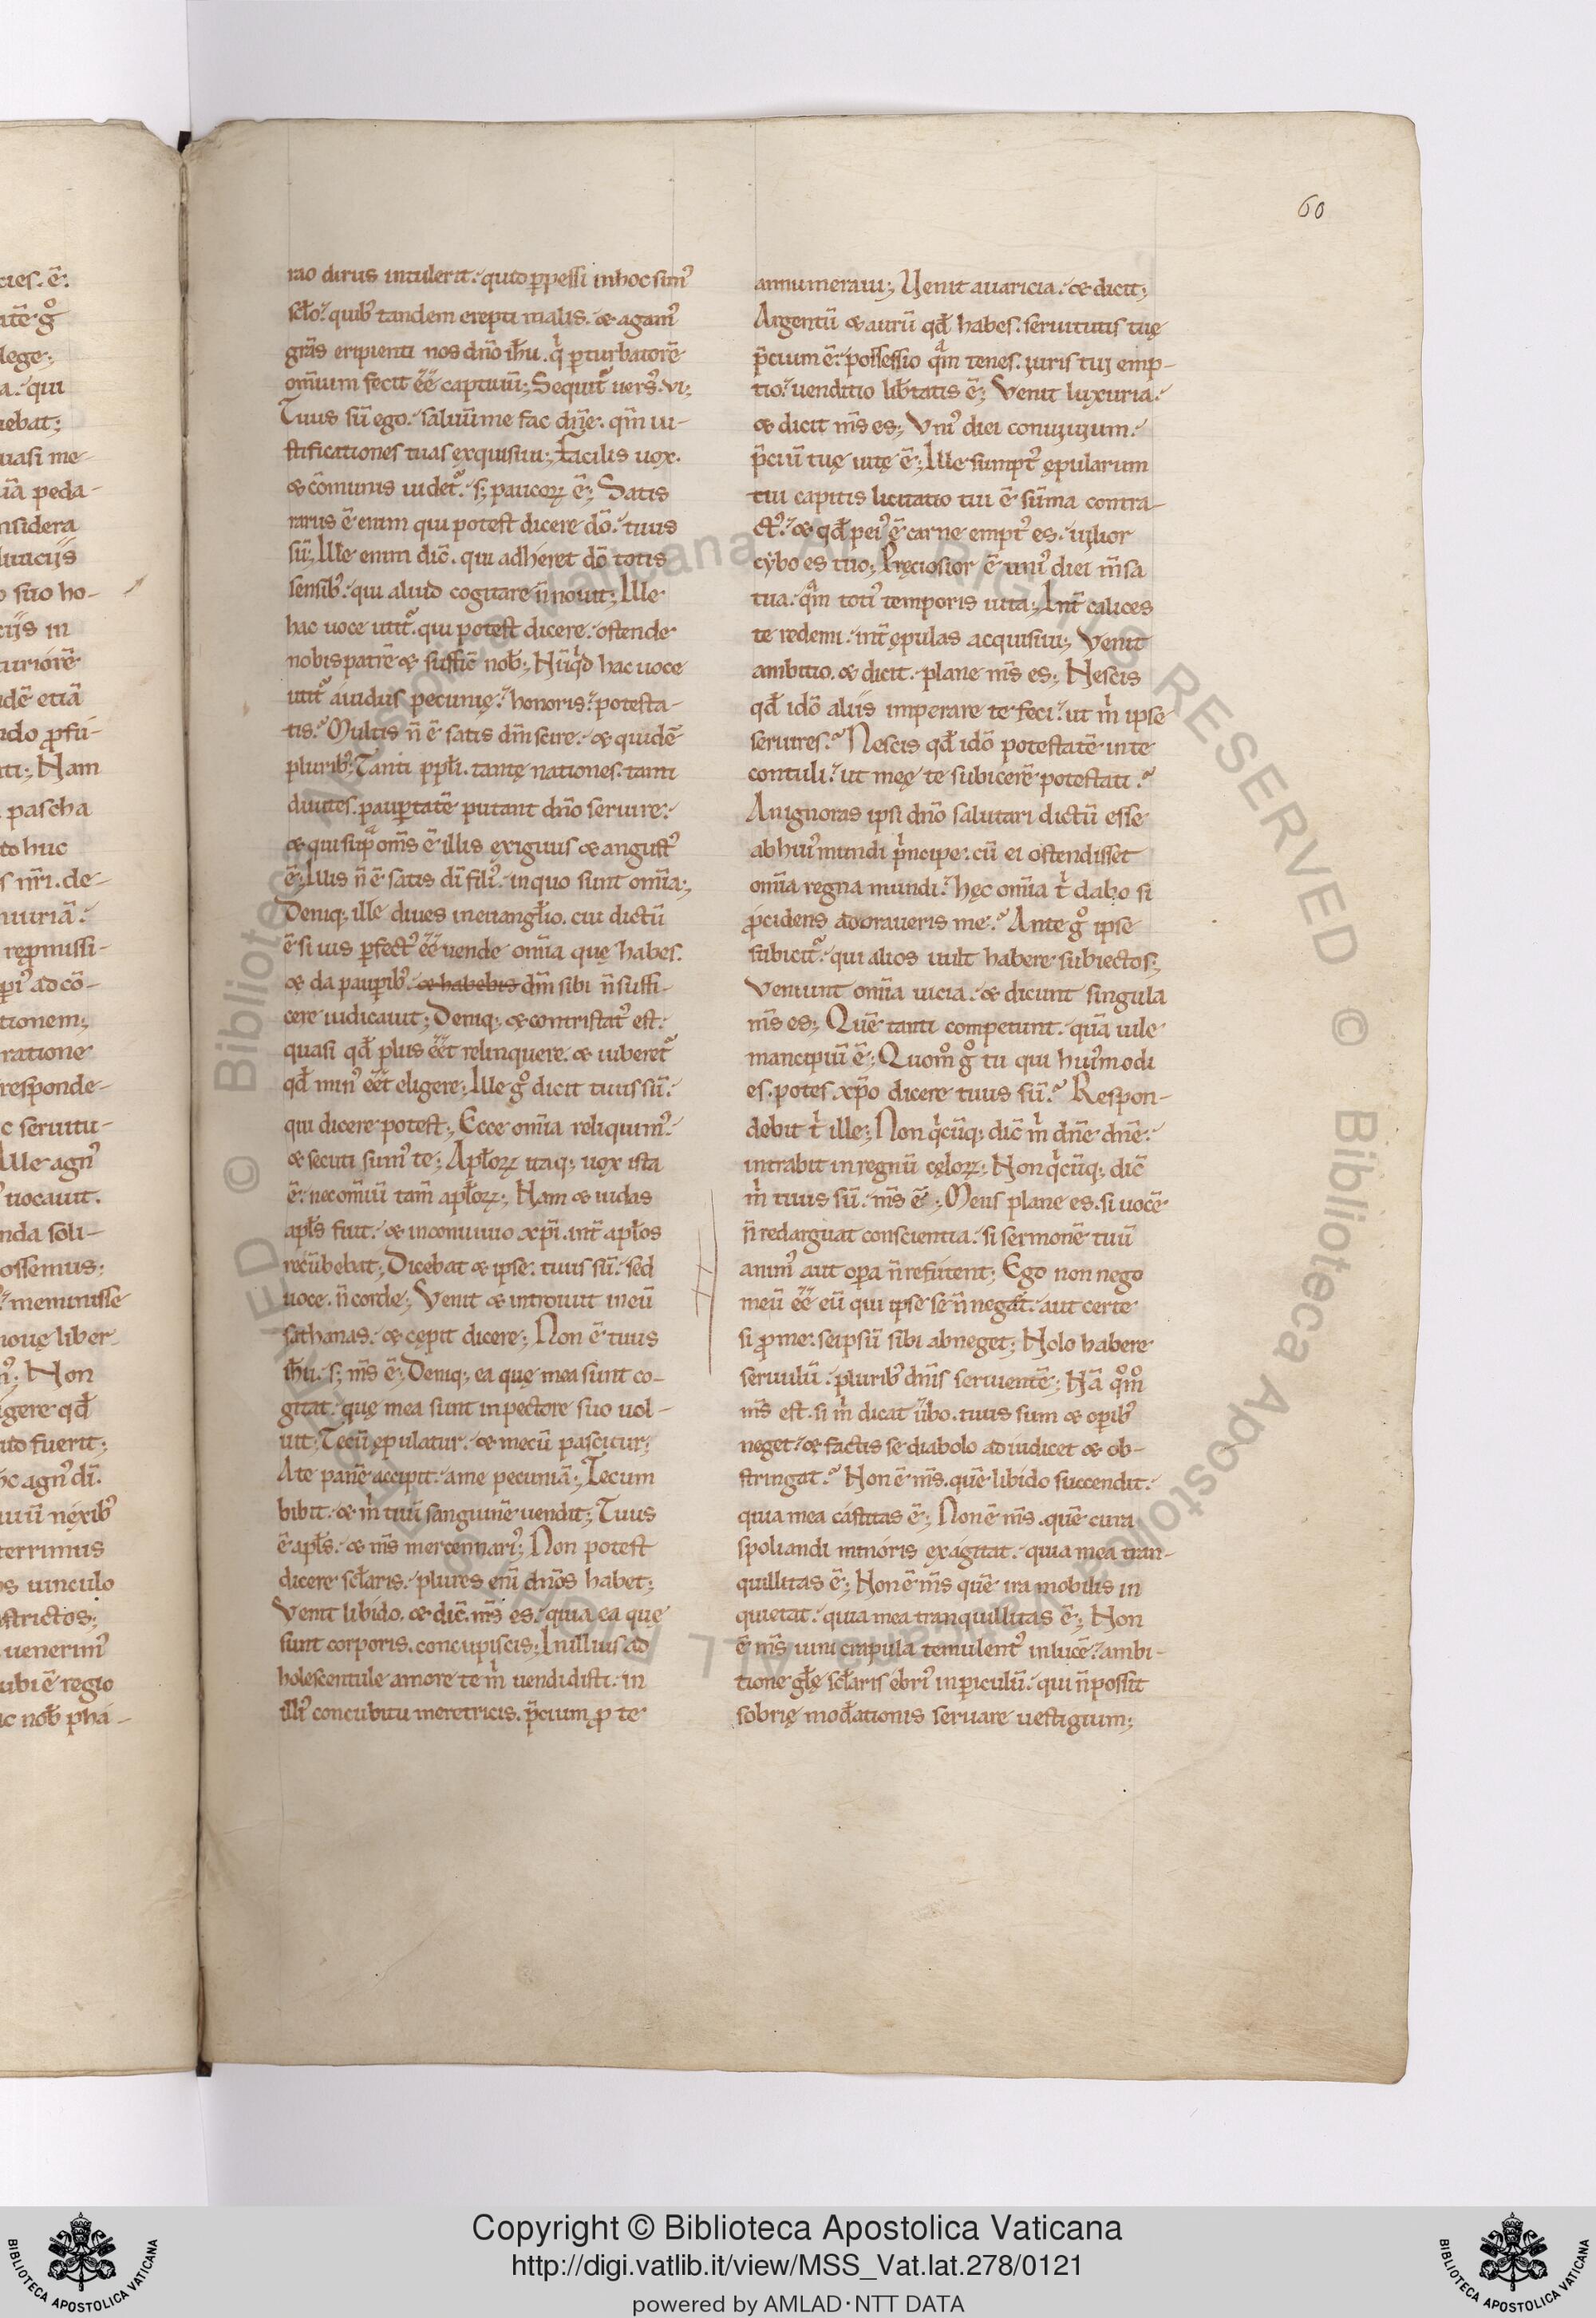 60
cies. ē.
atē g̊
lege;
a. qui
uebat;
uasi me-
uīa peda-
nsidera
luuciis
o suo ho-
ciis in
turiorē
udē etiā
ndo ꝓfu-
ti; Nam
pascha
to huc
s nr̄i. de-
niuriā.
rep̄missi-
ꝑi᾽ ad cō-
tionem;
ratione
responde-
c seruitu-
Ille agn᾽
uocauit.
nda soli-
ossemus;
meminisse
nouę liber-
Non
igere qđ
uto fuerit;
c agn᾽ dī.
uū nexib᾽
terrimus
os uinculo
strictos;
uenerim᾽
ubi ē regio
c nob̄ pha-
rao dirus intulerit. quid ꝑpessi in hoc sim᾽
scło. quib᾽ tandem erepti malis. & agam᾽
grās eripienti nos dn̄o ih̄u. q̇ ꝑturbatorē
om̄ium fecit ēē captiuū; Sequit᷑ uers᾽. vi;
Tuus sū ego. saluū me fac dn̄e. qm̄ iu-
stificationes tuas exquisiui; Facilis uox.
& cōmunis uidet᷑. s; paucoꝝ ē; Satis
rarus ē enim qui potest dicere dō. tuus
sū; Ille enim dic̄. qui adheret dō totis
sensib᾽. qui aliud cogitare n̄ nouit; Ille
hac uoce utit᷑. qui potest dicere. ostende
nobis patrē & suffic̄ nob̄; Nūqd hac uoce
utit᷑ auidus pecunię. honoris. potesta-
tis. Multis n̄ ē satis dm̄ scire. & quidē
plurib᾽; Tanti ppłi. tantę nationes. tanti
diuites. pauꝑtatē putant dn̄o seruire.
& qui sup̄ om̄s ē illis exiguus & angust᾽
ē; Illis n̄ ē satis dī fili᾽. in quo sunt om̄ia;
Deniq; ille diues in euangłio. cui dictū
ē si uis ꝑfect᾽ ēē uende om̄ia quę habes.
& da pauꝑib᾽. & habebis dm̄ sibi n̄ suffi-
cere iudicauit; Deniq; & contristat᾽ est.
quasi qđ plus ēēt relinquere. & iuberet᷑
qđ min᾽ ēēt eligere; Ille g̊ dicit tuus sū.
qui dicere potest; Ecce om̄ia reliquim᾽.
& secuti sum᾽ te; Apłoꝝ itaq; uox ista
ē. nec om̄iū tam̄ apłoꝝ; Nam & iudas
apłs fuit. & in conuiuio xpī. int̄ apłos
recūbebat; Dicebat & ipse. tuus sū. sed
uoce. n̄ corde; Venit & introiuit in eū
sathanas. & cępit dicere; Non ē tuus
ih̄u. s; m̄s ē; Deniq; ea quę mea sunt co-
gitat. quę mea sunt in pectore suo uol-
uit; Tecū epulatur. & mecū pascitur;
A te panē accipit. a me pecuniā; Tecum
bibit. & ṁ tuū sanguinē uendit; Tuus
ē apłs. & m̄s mercennari᾽; Non potest
dicere scłaris. plures eni᷒ dn̄os habet;
Venit libido. & dic̄. m̄s es. quia ea quę
sunt corporis. concupiscis; In illius ad
holescentule amore te ṁ uendidisti. in
illi᾽ concubitu meretricis. p̄cium ꝓ te
annumeraui; Venit auaricia. & dicit;
Argentū & aurū qđ habes. seruitutis tuę
p̄cium ē. possessio qᵃm tenes. iuris tui emp-
tio. uenditio lib̄tatis ē; Venit luxuria.
& dicit m̄s es; Vni᾽ diei conuiuium.
p̄ciū tuę uitę ē; Ille sumpt᾽ epularum
tui capitis licitatio tui ē sūma contra-
ct᾽. & qđ pei᾽ ē carne empt᾽ es. uilior
cybo es tuo; Preciosior ē uni᾽ diei m̄sa
tua. qᵃm toti᾽ temporis uita; Int̄ calices
te redemi. int̄ epulas acquisiui; Venit
ambitio. & dicit. plane m̄s es; Nescis
qđ idō aliis imperare te feci. ut ṁ ipse
seruires. Nescis qđ idō potestatē in te
contuli. ut meę te subicerē potestati.
An ignoras ipsi dn̄o salutari dictū esse
ab hui᾽ mundi ṗncipe. cū ei ostendisset
om̄ia regna mundi. hęc om̄ia ṫ dabo si
p̄cidens adoraueris me. Ante g̊ ipse
subicit᷑. qui alios uult habere subiectos;
Veniunt om̄ia uicia. & dicunt singula
m̄s es; Quē tanti competunt. quā uile
mancipiū ē; Quom̊ g̊ tu qui hui᾽modi
es. potes xp̄o dicere tuus sū. Respon-
debit ṫ ille; Non q̇cūq; dic̄ ṁ dn̄e dn̄e.
intrabit in regnū cęloꝝ; Non q̇cūq; dic̄
ṁ tuus sū. m̄s ē; Meus plane es. si uocē
n̄ redarguat conscientia. si sermonē tuū
anim᾽ aut oꝑa n̄ refutent; Ego non nego
meū ēē eū qui ipse se n̄ negat. aut certe
si ꝓ me. seipsū sibi abneget; Nolo habere
seruulū. plurib᾽ dn̄is seruientē; Nā qm̊
m̄s est. si ṁ dicat ūbo. tuus sum & oꝑib᾽
neget. & factis se diabolo adiudicet & ob-
stringat. Non ē m̄s. quē libido succendit.
quia mea castitas ē; Non ē m̄s. quē cura
spoliandi minoris exagitat. quia mea tran-
quillitas ē; Non ē m̄s quē ira mobilis in
quietat. quia mea tranquillitas ē; Non
ē m̄s uini crapula temulent᾽ in lucē. ambi-
tione głę scłaris ebri᾽ in ꝑiculū. qui n̄ possit
sobrię mođationis seruare uestigium;
© Biblioteca Apostolica Vaticana ALL RIGHTS RESERVED
© Biblioteca Apostolica Vaticana ALL RIGHTS RESERVED
Copyright © Biblioteca Apostolica Vaticana
http://digi.vatlib.it/view/MSS_Vat.lat.278/0121
powered by AMLAD·NTT DATA
BIBLIOTECA APOSTOLICA VATICANA
BIBLIOTECA APOSTOLICA VATICANA